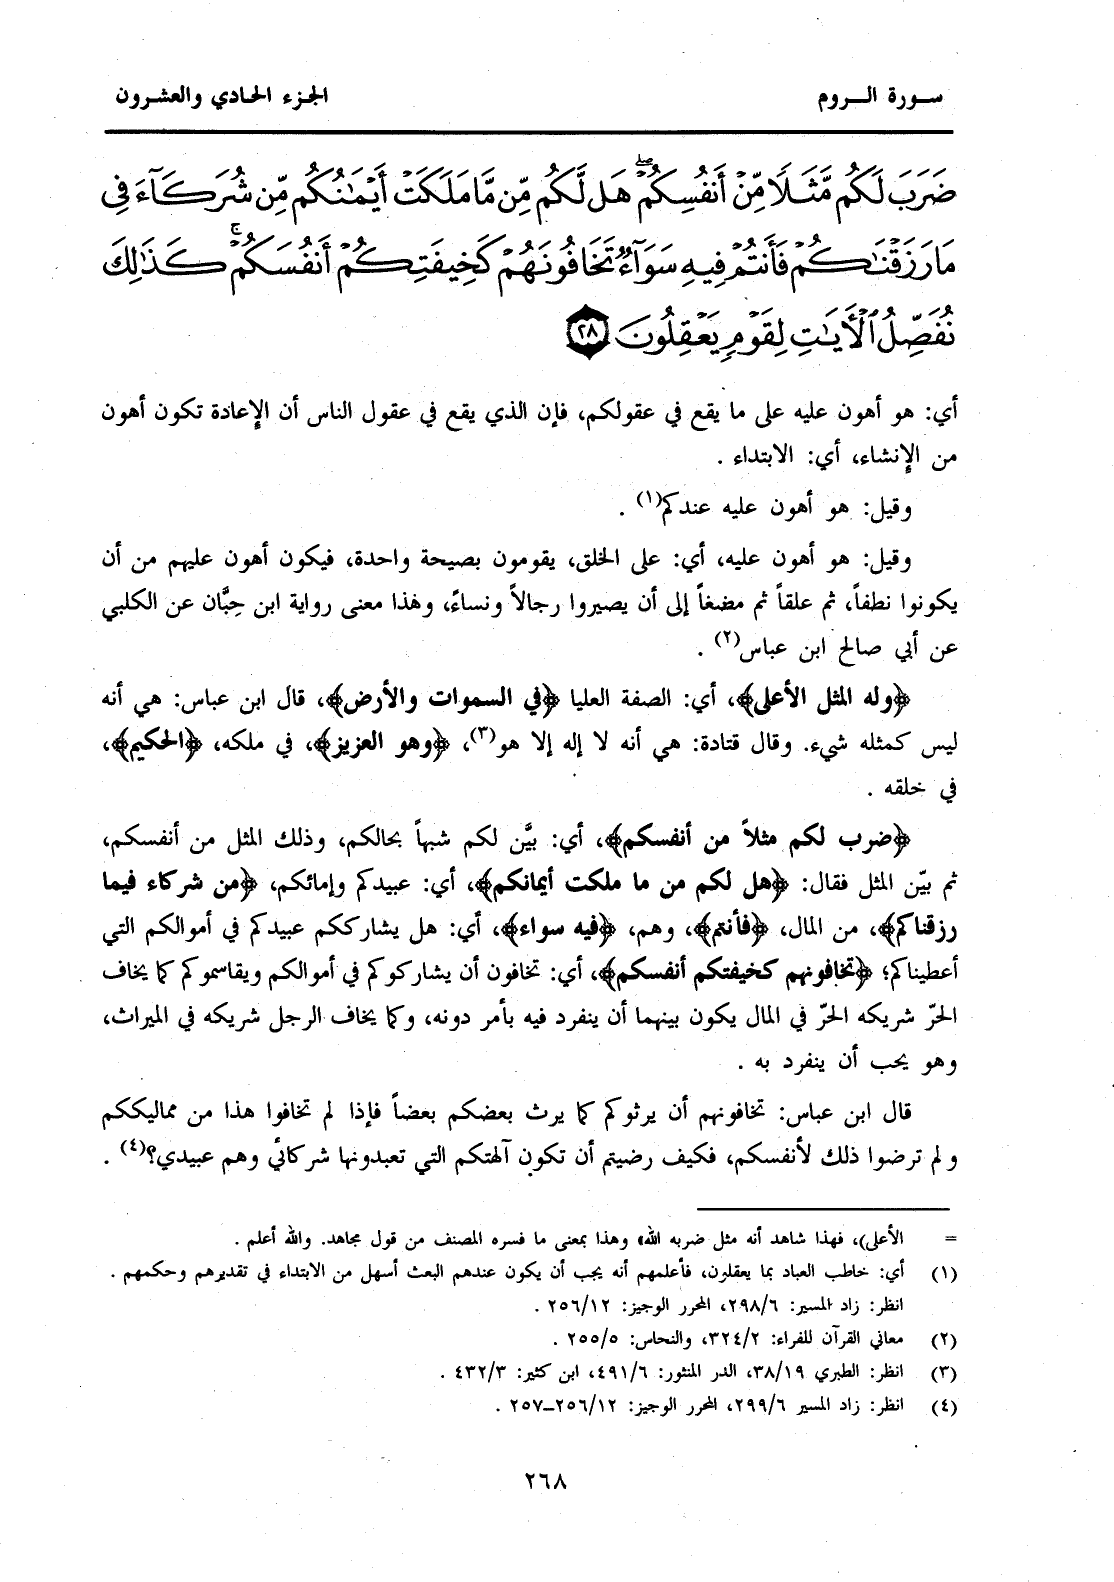 سورة الروم
الجزء الحادي والعشرون
ضَرَبَ لَكُم مَّثَلًا مِّنْ أَنفُسِكُمْ ۖ هَل لَّكُم مِّن مَّا مَلَكَتْ أَيْمَٰنُكُم مِّن شُرَكَآءَ فِى
مَا رَزَقْنَٰكُمْ فَأَنتُمْ فِيهِ سَوَآءٌ تَخَافُونَهُمْ كَخِيفَتِكُمْ أَنفُسَكُمْ ۚ كَذَٰلِكَ
نُفَصِّلُ ٱلْأَيَٰتِ لِقَوْمٍ يَعْقِلُونَ ٢٨
أي: هو أهون عليه على ما يقع في عقولكم، فإن الذي يقع في عقول الناس أن الإعادة تكون أهون
من الإنشاء، أي: الابتداء .
وقيل: هو أهون عليه عندكم(١) .
وقيل: هو أهون عليه، أي: على الخلق، يقومون بصيحة واحدة، فيكون أهون عليهم من أن
يكونوا نطفاً، ثم علقاً ثم مضغاً إلى أن يصيروا رجالاً ونساءً، وهذا معنى رواية ابن حِبَّان عن الكلبي
عن أبي صالح ابن عباس(٢) .
﴿وله المثل الأعلى﴾، أي: الصفة العليا ﴿في السموات والأرض﴾، قال ابن عباس: هي أنه
ليس كمثله شيء. وقال قتادة: هي أنه لا إله إلا هو(٣)، ﴿وهو العزيز﴾، في ملكه، ﴿الحكيم﴾،
في خلقه .
﴿ضرب لكم مثلاً من أنفسكم﴾، أي: بيَّن لكم شبهاً بحالكم، وذلك المثل من أنفسكم،
ثم بيّن المثل فقال: ﴿هل لكم من ما ملكت أيمانكم﴾، أي: عبيدكم وإمائكم، ﴿من شركاء فيما
رزقناكم﴾، من المال، ﴿فأنتم﴾، وهم، ﴿فيه سواء﴾، أي: هل يشارككم عبيدكم في أموالكم التي
أعطيناكم؛ ﴿تخافونهم كخيفتكم أنفسكم﴾، أي: تخافون أن يشاركوكم في أموالكم ويقاسموكم كما يخاف
الحرّ شريكه الحرّ في المال يكون بينهما أن ينفرد فيه بأمر دونه، وكما يخاف الرجل شريكه في الميراث،
وهو يحب أن ينفرد به .
قال ابن عباس: تخافونهم أن يرثوكم كما يرث بعضكم بعضاً فإذا لم تخافوا هذا من مماليككم
ولم ترضوا ذلك لأنفسكم، فكيف رضيتم أن تكون آلهتكم التي تعبدونها شركائي وهم عبيدي؟(٤) .
= الأعلى)، فهذا شاهد أنه مثل ضربه الله» وهذا بمعنى ما فسره المصنف من قول مجاهد. والله أعلم .
(١) أي: خاطب العباد بما يعقلون، فأعلمهم أنه يجب أن يكون عندهم البعث أسهل من الابتداء في تقديرهم وحكمهم .
انظر: زاد المسير: ٢٩٨/٦، المحرر الوجيز: ٢٥٦/١٢ .
(٢) معاني القرآن للفراء: ٣٢٤/٢، والنحاس: ٢٥٥/٥ .
(٣) انظر: الطبري ٣٨/١٩، الدر المنثور: ٤٩١/٦، ابن كثير: ٤٣٢/٣ .
(٤) انظر: زاد المسير ٢٩٩/٦، المحرر الوجيز: ٢٥٦/١٢-٢٥٧ .
٢٦٨